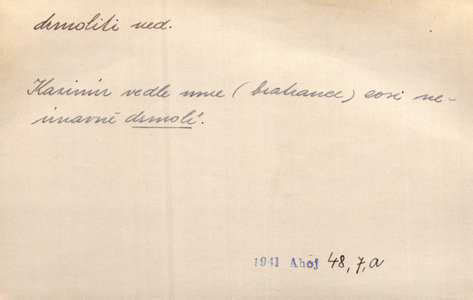 drmoliti ned.
Kazimír vedle mne (bratrance) cosi ne-
únavně drmolí.
1941 Ahoj 48,7,a